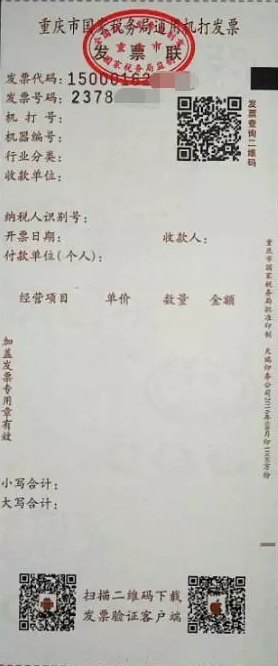 重庆市国家税务局通用机打发票
发票联
发票代码：15000162
发票号码：2378
机打号：
机器编号：
行业分类：
收款单位：
发票查询二维码
纳税人识别号：
开票日期： 收款人：
付款单位(个人)：
经营项目 单价 数量 金额
加盖发票专用章有效
小写合计：
大写合计：
扫描二维码下载
发票验证客户端